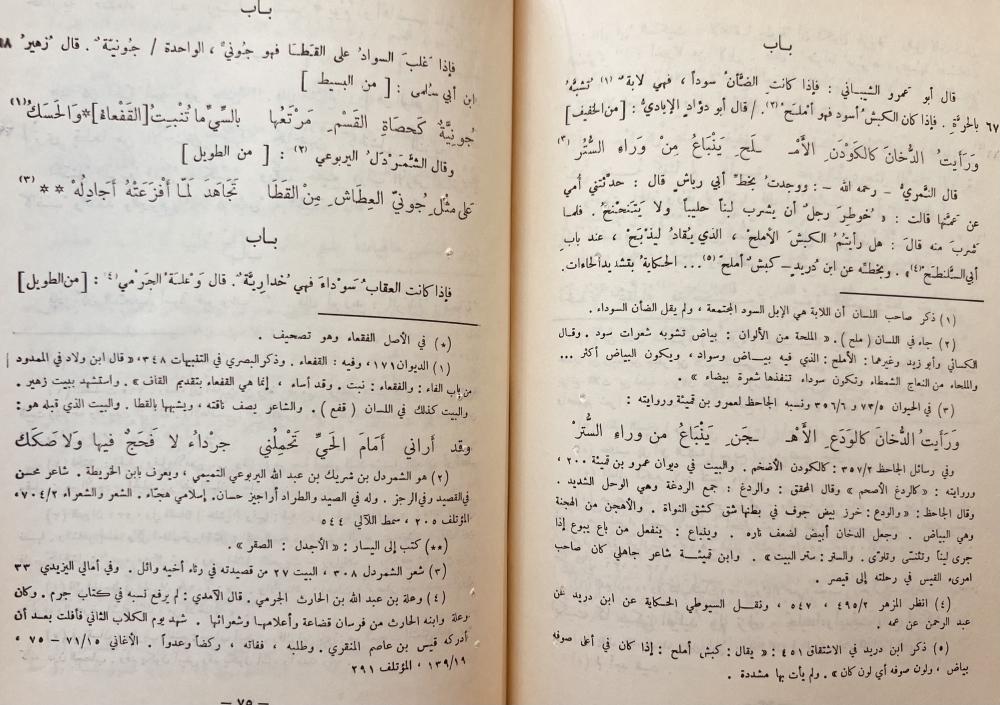 باب
قال أبو عَمرو الشيباني : فإذا كانت الضَّأنُ سوداً ، فهي لابةٌ (١) تُشبَّهُ
٦٧ بالحرَّةِ . فإذا كان الكبشُ أسود فهو أملحُ (٢) . / قال أبو دوَاد الإياديُّ : [ من الخفيف ]
ورَأيتُ الدُّخانَ كالكَودَنِ الأمْـ ـلَحِ يَنْباعُ مِنْ وَراءِ السُّتُرِ (٣)
قال النَّمريُّ - رحمه الله - : ووجدتُ بخطِّ أبي رياشٍ قال : حدَّثتني أُمي
عن عَمَّتِها قالت : « خُوطِرَ رجلٌ أن يشرب لبناً حليباً ولا يَتَنَحْنَحُ . فلما
شرب منه قالَ : هل رأيتُمُ الكبشَ الأملحْ ، الذي يُقادُ ليُذْبَحْ ، عند بابِ
أبي السَّلنطَحْ (٤) » . وبخطِّه عن ابن دُريدٍ - كبشٌ أملحّ (٥) ... الحكايةُ بتشديد الحاءات .
(١) ذكر صاحب اللسان أن اللابة هي الإبل السود المجتمعة ، ولم يقل الضأن السوداء .
(٢) جاء في اللسان ( ملح ) . « الملحة من الألوان : بياض تشوبه شعرات سود . وقال
الكسائي وأبو زيد وغيرهما : الأملح : الذي فيه بيـاض وسواد ، ويكون البياض أكثر ...
والملحاء من النعاج الشمطاء وتكون سوداء تنفذها شعرة بيضاء » .
(٣) في الحيوان ٧٣/٥ و ٣٥٦/٦ ونسبه الجاحظ لعمرو بن قميئة وروايته :
ورَأيتُ الدُّخانَ كالودَعِ الأهْـ ـجَنِ يَنْباعُ من وراءِ السُّترْ
وفي رسائل الجاحظ ٣٥٧/٢ : كالكودون الأضخم . والبيت في ديوان عمرو بن قميئة ٢٠٠ ،
وروايته : « كالردغ الأصحم » وقال المحقق : والردغ : جمع الردغة وهي الوحل الشديد .
وقال الجاحظ : « والودع : خرز بيض جوف في بطنها شق كشق النواة . والأهجن من الهجنة
وهي البياض . وجعل الدخان أبيض لضعف ناره . وينباع : ينفعل من باع يبوع إذا
جرى ليناً وتثنى وتلوّى . والستر : ستر البيت » . وابن قميئـة شاعر جاهلي كان صاحب
امرىء القيس في رحلته إلى قيصر .
(٤) انظر المزهر ٤٩٥/٢ ، ٥٤٧ ، ونقـل السيوطي الحكاية عن ابن دريد عن
عبد الرحمن عن عمه .
(٥) ذكر ابن دريد في الاشتقاق ٤٥١ : « يقال : كبش أملح : إذا كان في أعلى صوفه
بياض ، ولون صوفه أي لون كان » . ولم يأت بها مشددة .
باب
فإذا غلبَ السوادُ على القَطَا فهو جُونيٌّ ، الواحدة / جُونيّةٌ . قال زُهيرُ ٦٨
ابن أبي سُلمى : [ من البسيط ]
جُونيَّةٌ كَحصَاةِ القَسْمِ مَرْتَعُها بالسِّيِّ ما تُنْبِتُ [ القَفْعاءُ ]* والحَسَكُ (١)
وقال الشَّمَرْدَلُ اليربوعي (٢) : [ من الطويل ]
على مثْلِ جُونيِّ العِطَاشِ مِنْ القَطَا تَجَاهَدَ لَمّا أفْزَعَتْهُ أجَادِلُهْ ** (٣)
باب
فإذا كانت العقابُ سَوْداءَ فهي خُداريَّةٌ . قال وَعْلَةُ الجَرْمي (٤) : [ من الطويل ]
(*) في الأصل الفقعاء وهو تصحيف .
(١) الديوان ١٧١ ، وفيه : القفعاء . وذكر البصري في التنبيهات ٣٤٨ « قال ابن ولاد في الممدود
من باب الفاء : والفقعاء : نبت . وقد أساء ، إنما هي القفعاء بتقديم القاف » . واستشهد ببيت زهير .
والبيت كذلك في اللسان ( قفع ) . والشاعر يصف ناقته ، ويشبهها بالقطا . والبيت الذي قبله هو :
وقد أراني أمَامَ الحَيِّ تَحْمِلُني جرْداءُ لا فَحَجٌ فيها ولا صكَكُ
(٢) هو الشمردل بن شريك بن عبد الله اليربوعي التميمي ، ويعرف بابن الخريطة . شاعر محسن
في القصيد وفي الرجز . وله في الصيد والطراد أراجيز حسان . إسلامي هجّاء . الشعر والشعراء ٧٠٤/٢ ،
المؤتلف ٢٠٥ ، سمط اللآلي ٥٤٤
(**) كتب إلى اليسار : « الأجدل : الصقر » .
(٣) شعر الشمردل ٣٠٨ ، البيت ٢٧ من قصيدته في رثاء أخيه وائل . وفي أمالي اليزيدي ٣٣
(٤) وعلة بن عبد الله بن الحارث الجرمي . قال الآمدي : لم يرفع نسبه في كتاب جرم . وكان
وعلة وابنه الحارث من فرسان قضاعة وأعلامهـا وشعرائها . شهد يوم الكلاب الثاني فأفلت بعـد أن
أدركه قيس بن عاصم المنقري . وطلبه ، ففاته ، ركضاً وعدواً . الأغاني ٧١/١٥ - ٧٥ ،
١٣٩/١٩ ، المؤتلف ٢٩١
- ٧٩ -